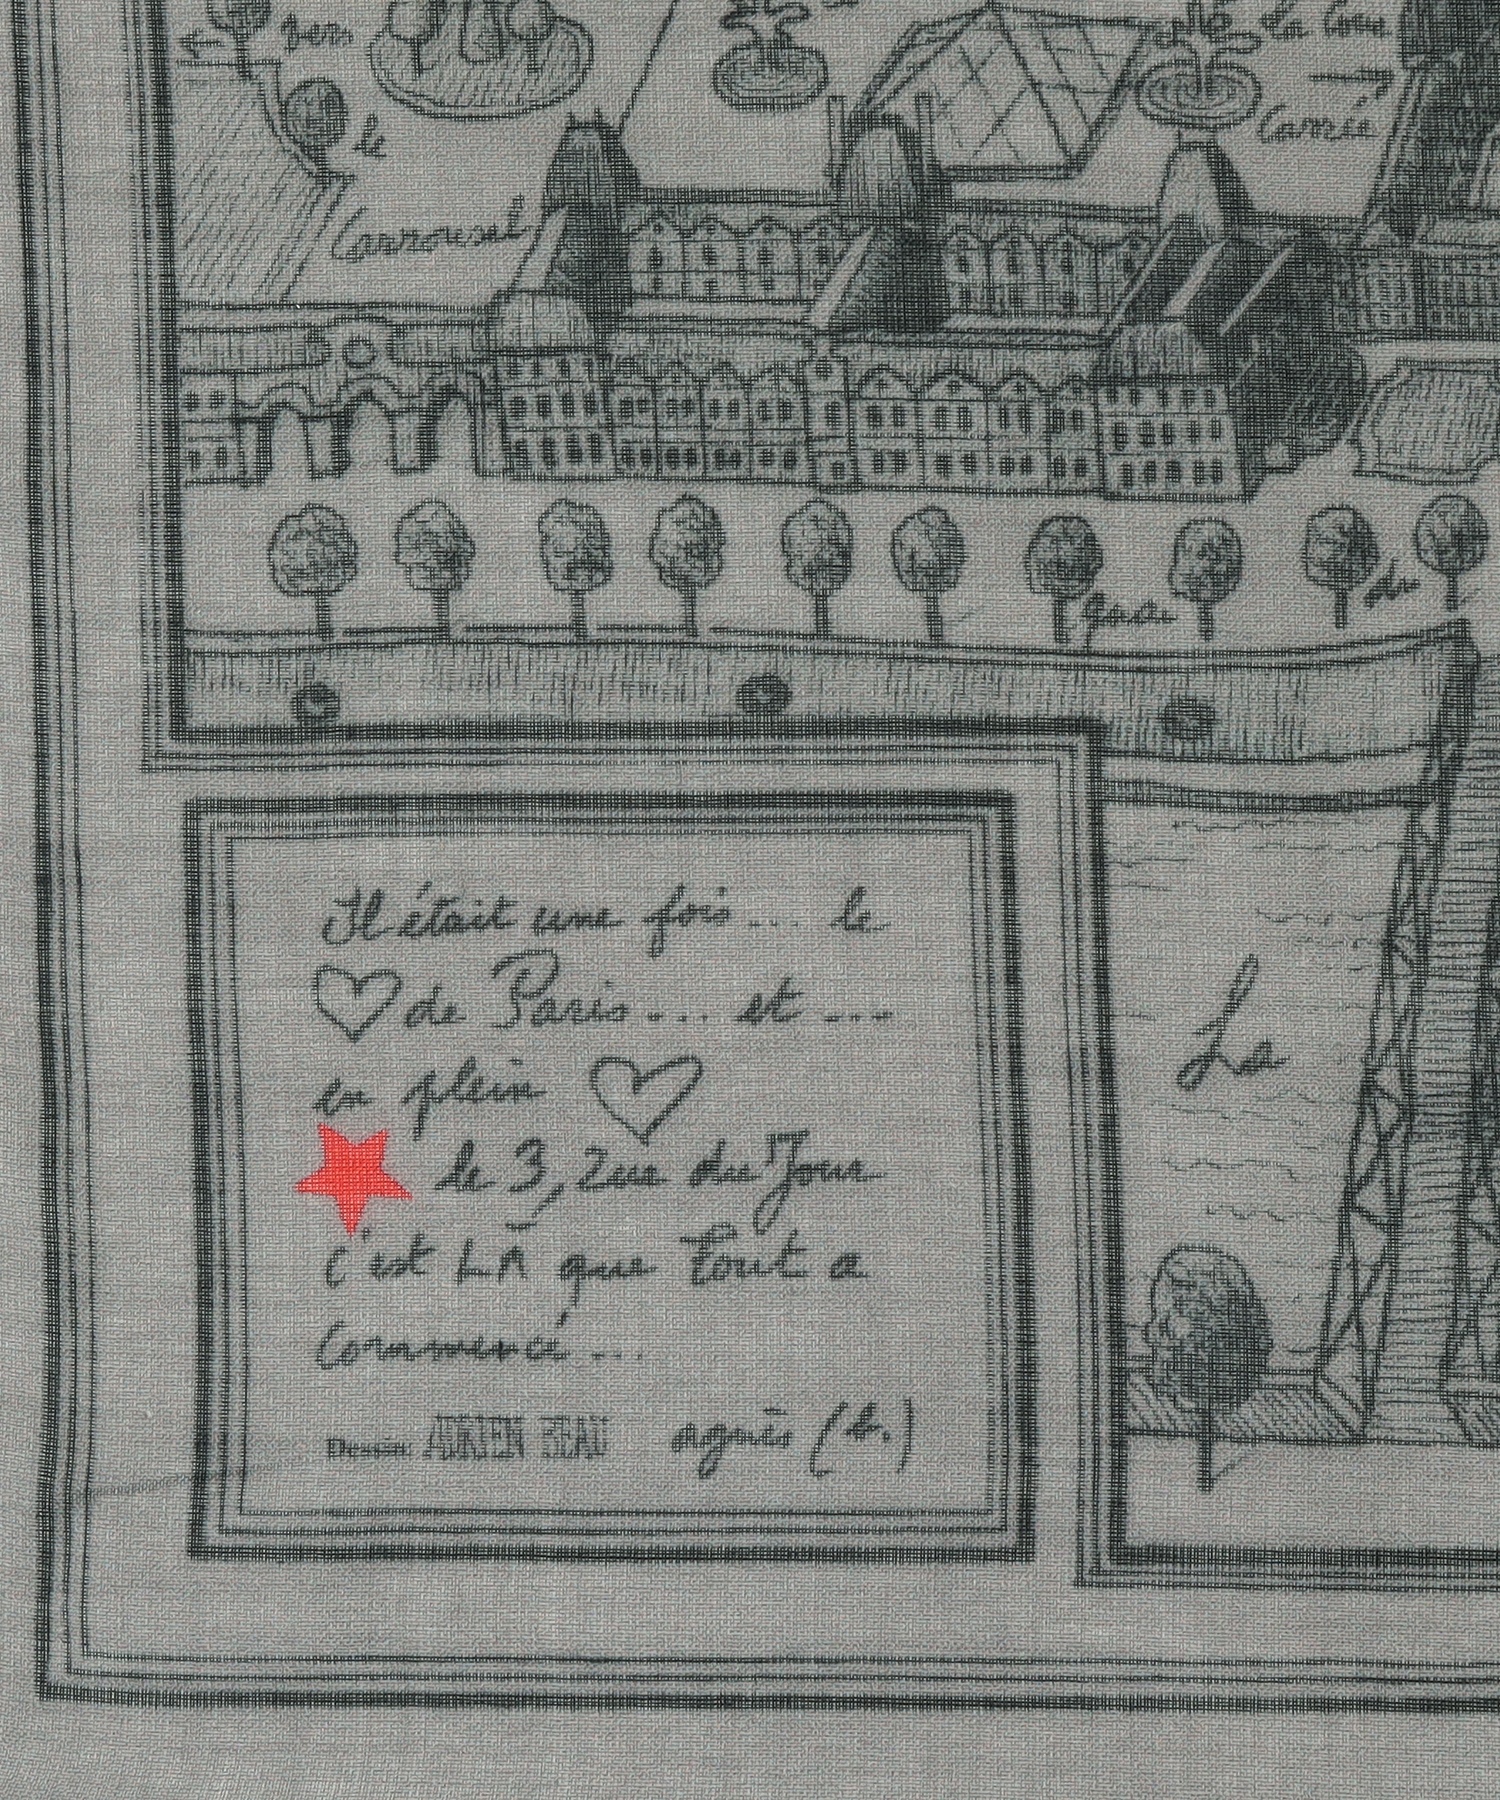 vers
la Cour
le
Carrée
Carrousel
quai
du
Il était une fois... le
♡ de Paris... et ...
en plein ♡
★ le 3, rue du Jour
c'est LÀ que tout a
Commencé...
Dessin: ADRIEN BEAU agnès (b.)
Le